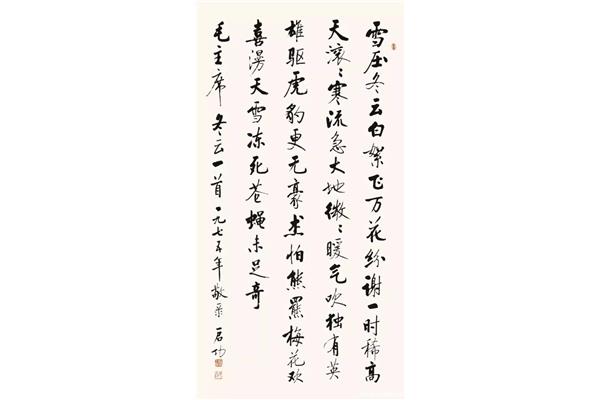 雪压冬云白絮飞万花纷谢一时稀高
天滚〻寒流急大地微〻暖气吹独有英
雄驱虎豹更无豪杰怕熊罴梅花欢
喜漫天雪冻死苍蝇未足奇
毛主席 冬云一首 一九七五年敬录 启功